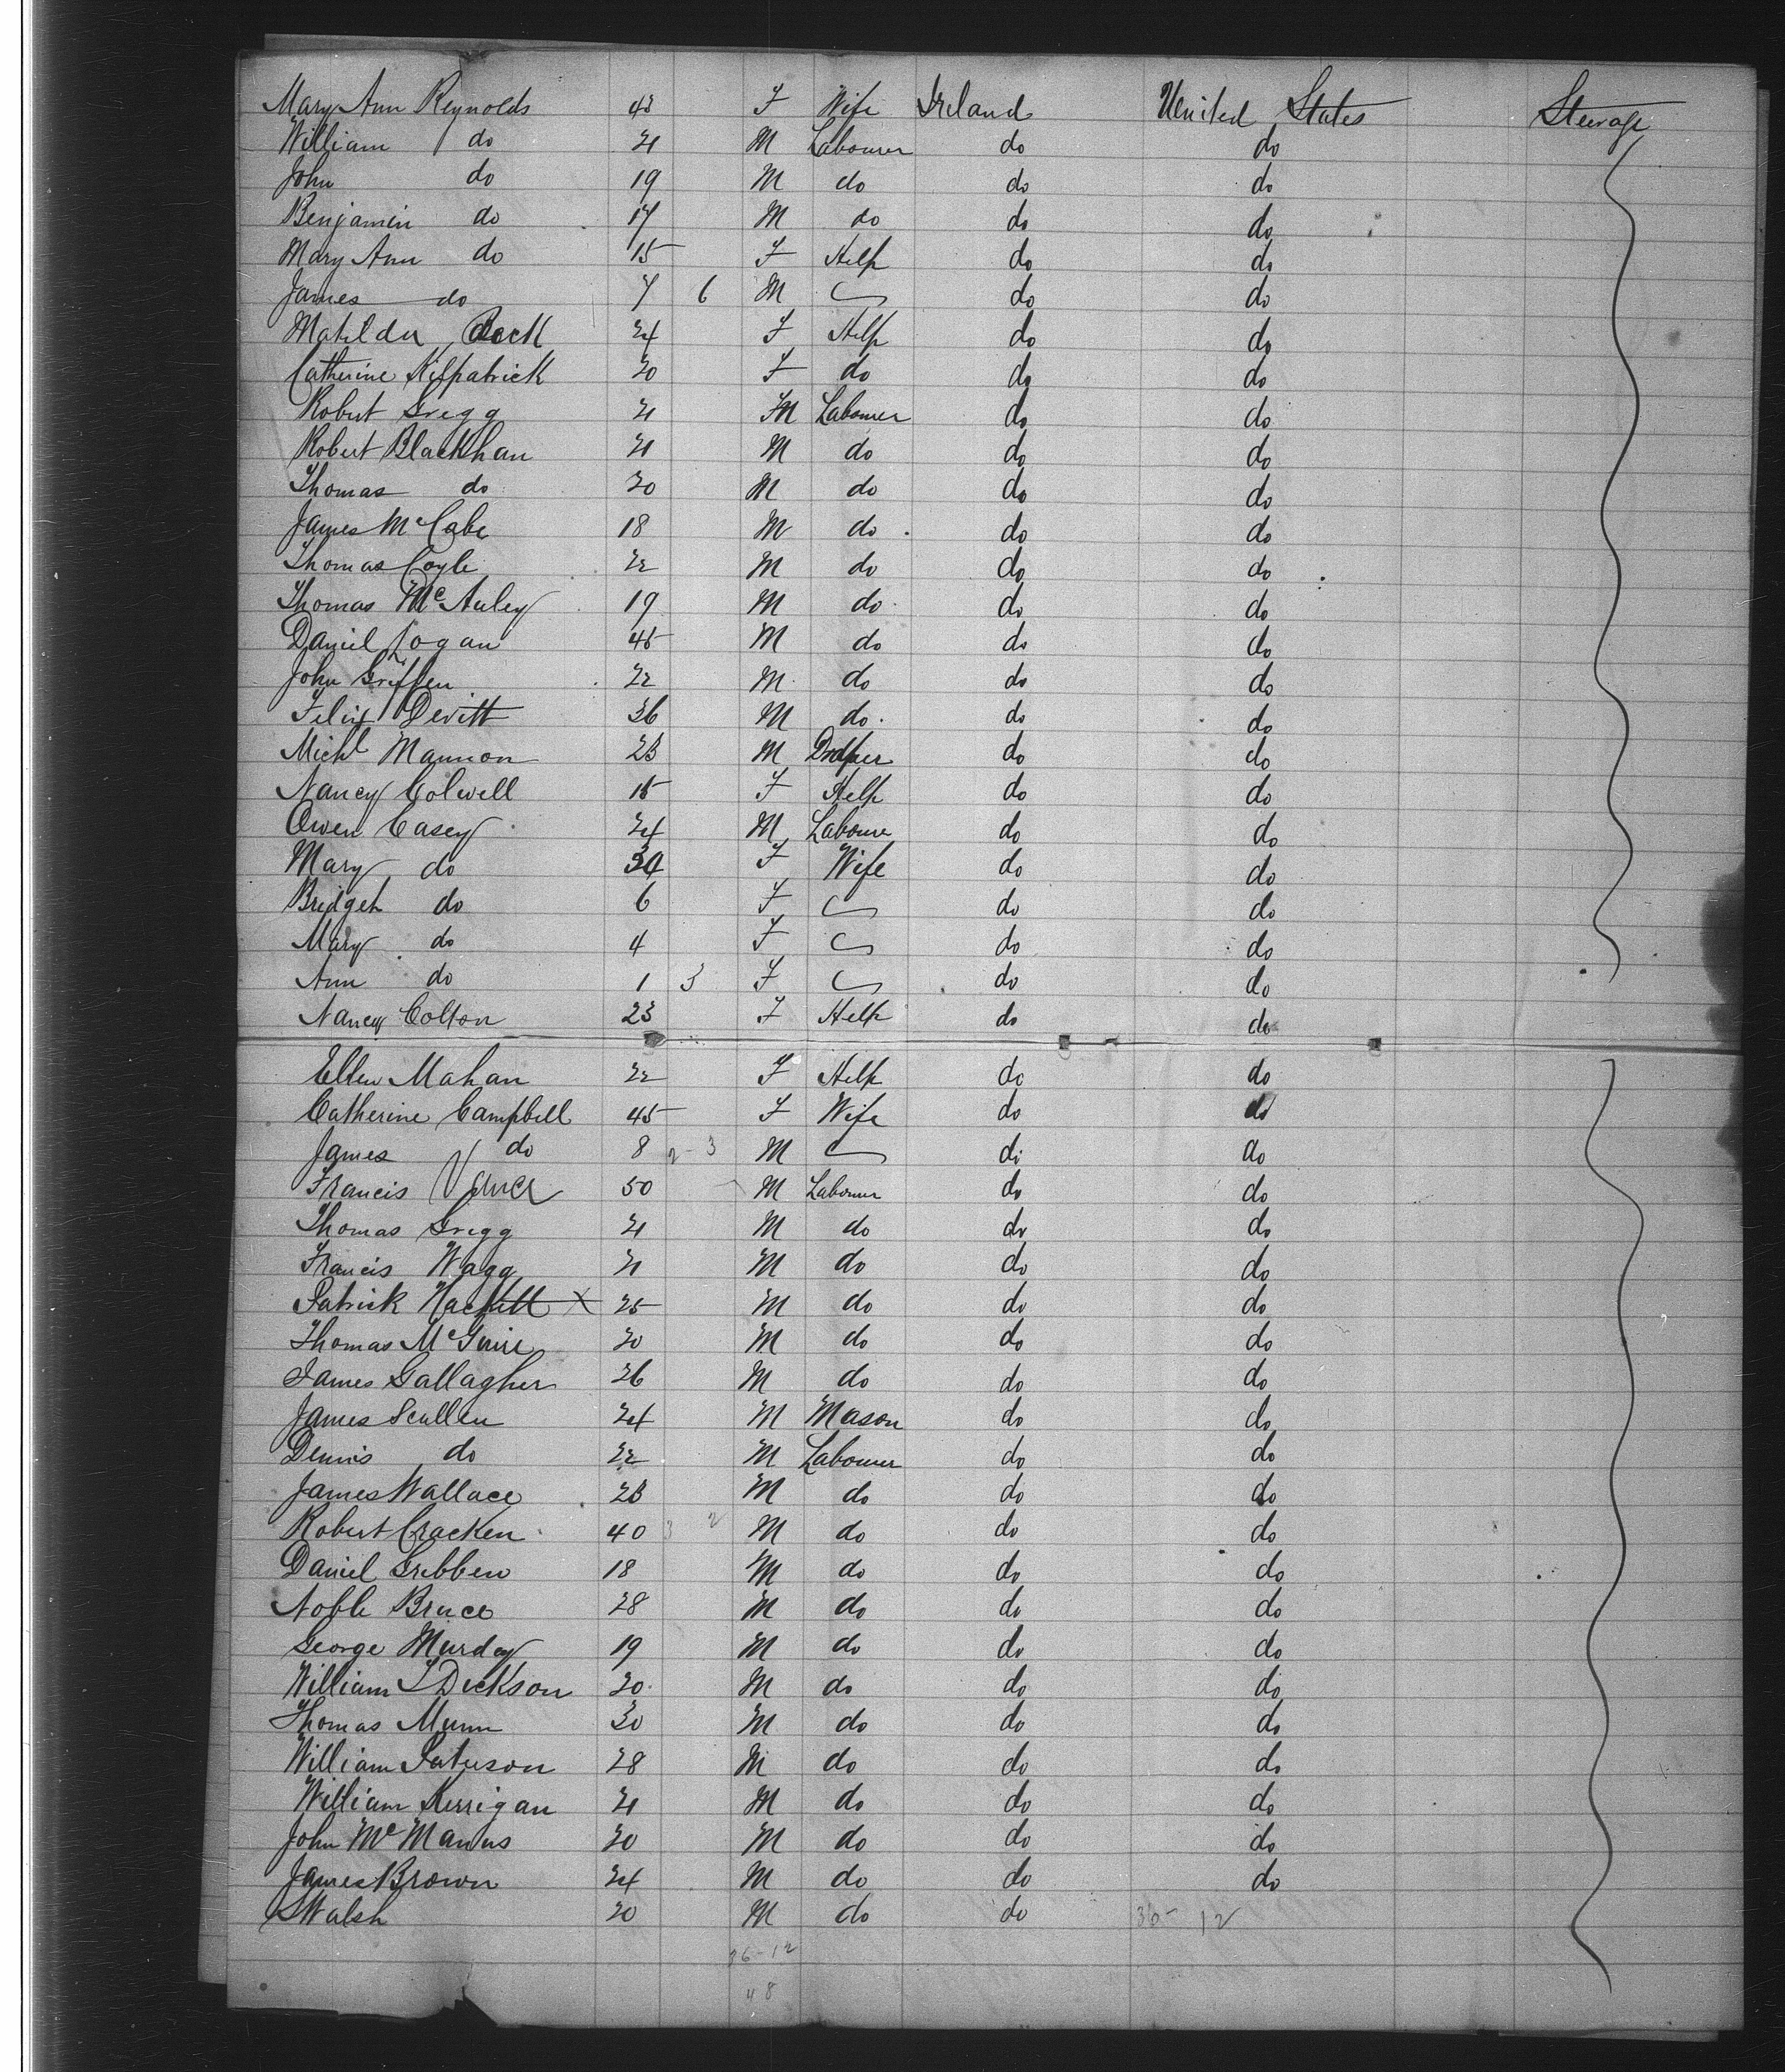 Mary Ann Reynolds 43 F Wife Ireland United States Steerage
William do 21 M Labourer do do
John do 19 M do do do
Benjamin do 17 M do do do
Mary Ann do 15 F Help do do
James do 7 6 M do do
Matilda 24 F Help do do
Catherine Kilpatrick 20 F do do do
Robert Gregg 21 M Labourer do do
Robert Blackhan 21 M do do do
Thomas do 20 M do do do
James McCabe 18 M do do do
Thomas Coyle 22 M do do do
Thomas McAuley 19 M do do do
Daniel Logan 45 M do do do
John Griffen 22 M do do do
Felix Devitt 26 M do do do
Michl Mannon 23 M Draper do do
Nancy Colwell 15 F Help do do
Owen Casey 24 M Labourer do do
Mary do 34 F Wife do do
Bridget do 6 F do do
Mary do 4 F do do
Ann do 1 3 F do do
Nancy Colton 23 F Help do do
Ellen Mahan 22 F Help do do
Catherine Campbell 45 F Wife do do
James do 8 2-3 M do do
Francis Vance 50 M Labourer do do
Thomas Gregg 21 M do do do
Francis Wagg 21 M do do do
Patrick X 25 M do do do
Thomas McGuire 20 M do do do
James Gallagher 26 M do do do
James Scullen 24 M Mason do do
Dennis do 22 M Labourer do do
James Wallace 23 M do do do
Robert Cracken 40 3 2 M do do do
Daniel Gribben 18 M do do do
Noble Bruce 28 M do do do
George Murdey 19 M do do do
William Dickson 20 M do do do
Thomas Munn 30 M do do do
William Paterson 28 M do do do
William Kerrigan 21 M do do do
John McManus 20 M do do do
James Brown 24 M do do do
Walsh 20 M do do 36-12
36-12
48